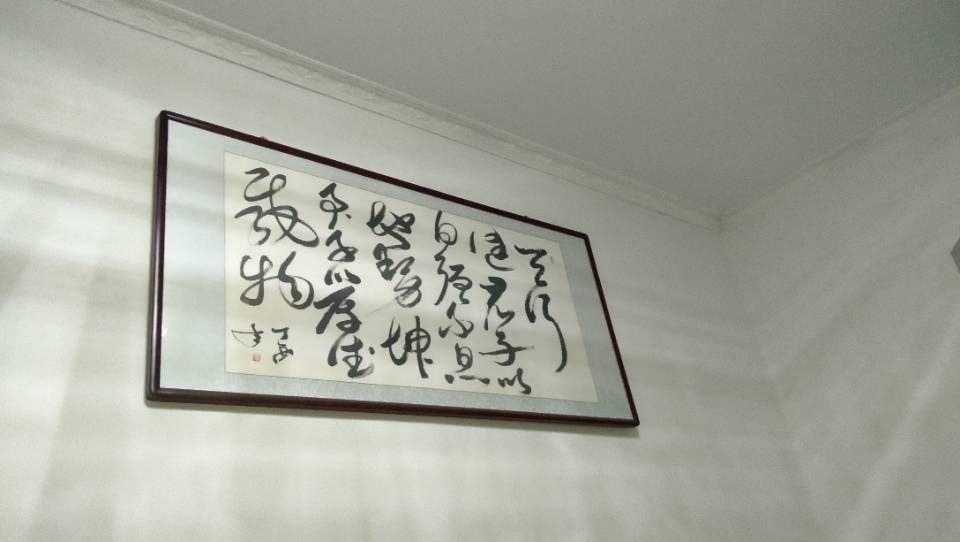 天行
健君子以
自强不息
地势坤
君子以厚德
载物